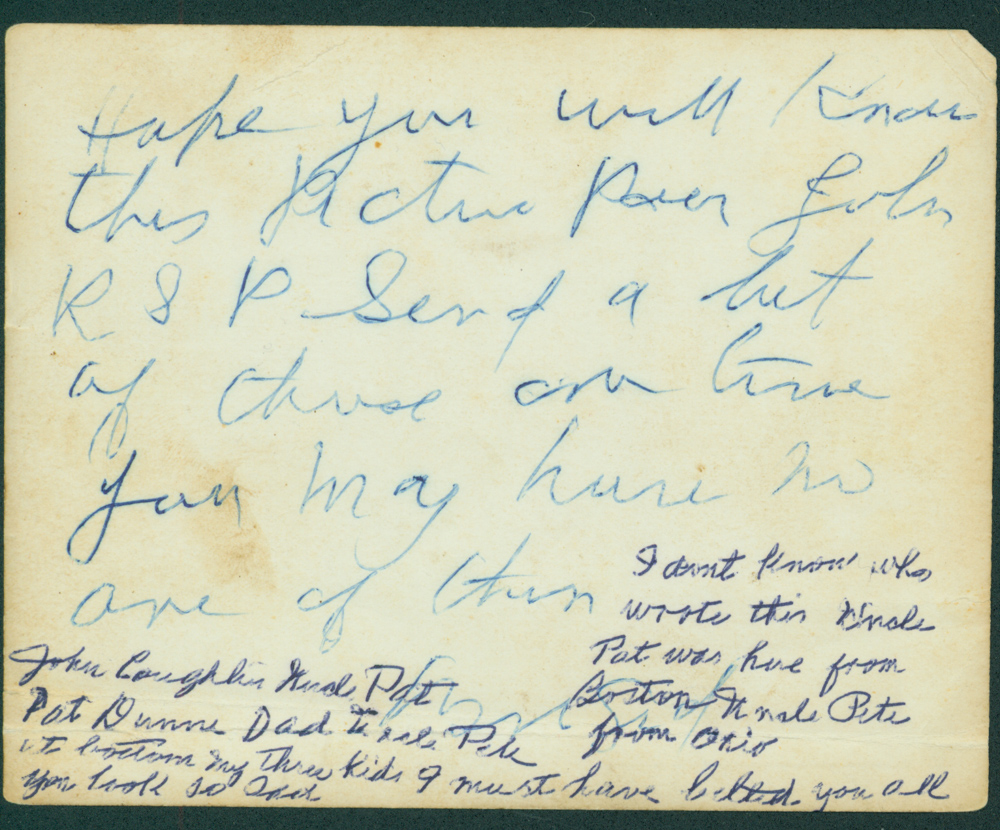 Hope you will know
this Picture Poor John
R I P Send a bit
of those on time
you may have no
one of them
I dont know who
wrote this Uncle
Pat was here from
Boston Uncle Pete
from Ohio
John Coughlin Uncle Pat
Pat Dunne Dad Uncle Pete
at bottom my three kids I must have belted you all
you look so sad